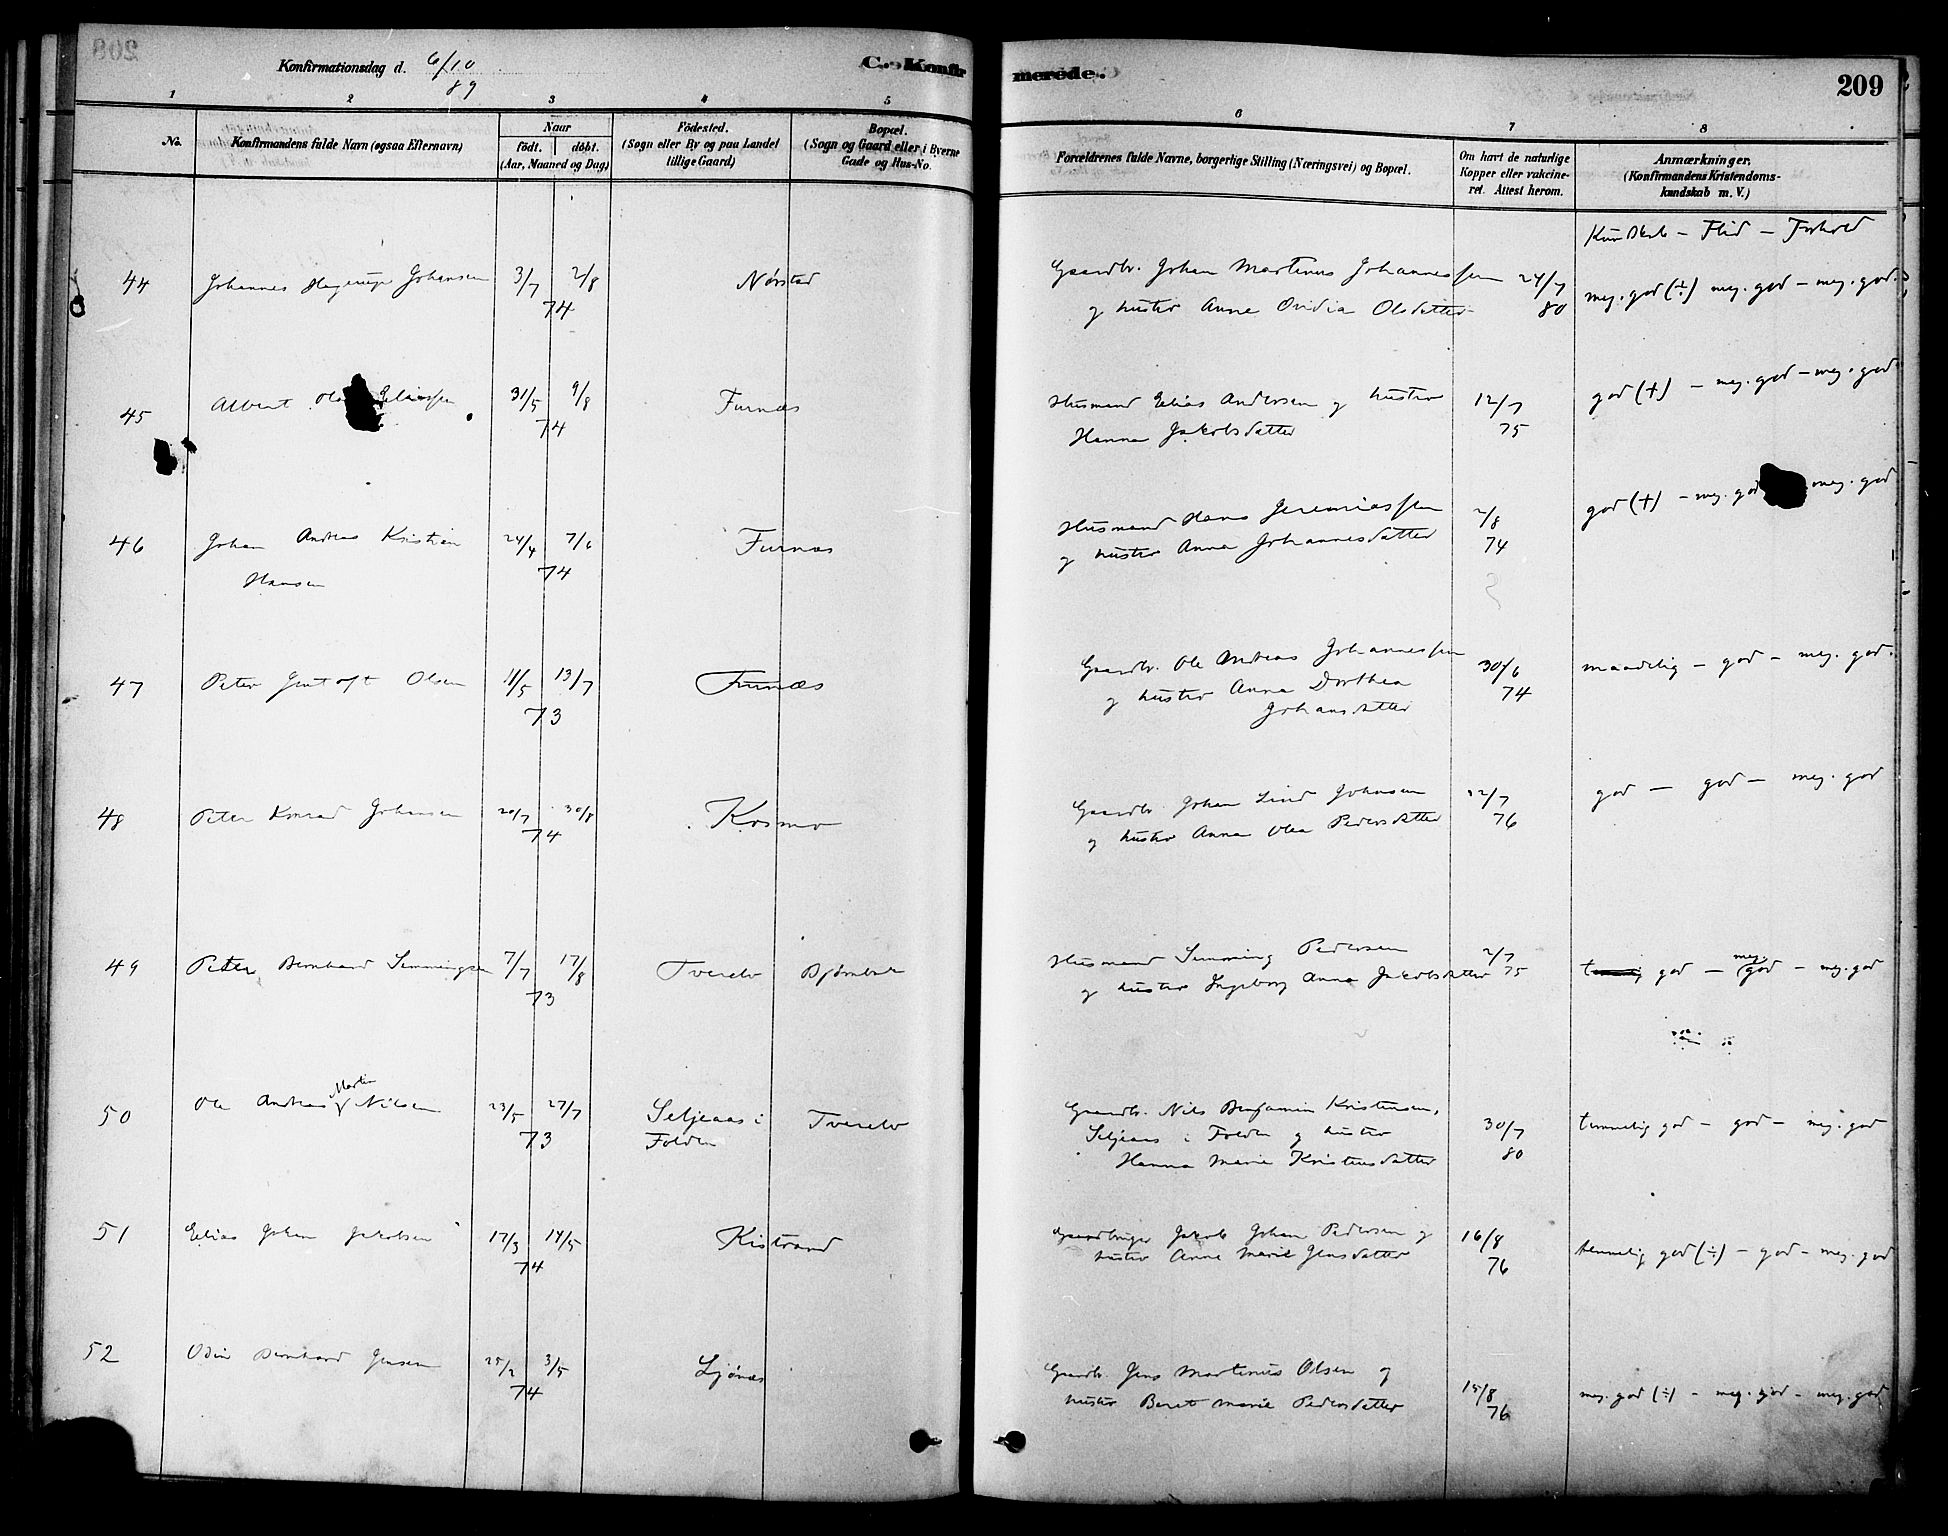 Konfirmationsdag d. 6/10 89
C. Konfirmerede.
209
1 2 3 4 5 6 7 8
No.
Konfirmandens fulde Navn (ogsaa Efternavn)
Naar
født. døbt.
(Aar, Maaned og Dag)
Fødested.
(Sogn eller By og paa Landet
tillige Gaard)
Bopæl.
(Sogn og Gaard eller i Byerne
Gade og Hus-No.
Forældrenes fulde Navne, borgerlige Stilling (Næringsvei) og Bopæl.
Om havt de naturlige
Kopper eller vakcine-
ret. Attest herom.
Anmærkninger.
(Konfirmandens Kristendoms-
kundskab m. V.)
Kundskab - Flid - Forhold
44 Johannes Hagerup Johansen 3/7 2/8 74 Nørstad
Gaardbr. Johan Martinus Johannessen 24/7 80 meg. god (÷) meg. god - meg. god.
og hustru Anne Ovidia Olsdatter
45 Albert Eliassen 31/5 9/8 74 Furnæs
Husmand Elias Andersen og hustru 12/7 75 god (+) - meg. god - meg. god.
Hanna Jakobsdatter
46 Johan Andreas Kristian 24/4 7/6 74 Furnæs
Hansen
Husmand Hans Jeremiassen 2/8 74 god (+) - meg. god meg. god
og hustru Anna Johannesdatter
47 Peter Olsen 11/5 13/7 73 Furnæs
Gaardbr. Ole Andreas Johannessen 30/6 74 maadelig - god - meg. god.
og hustru Anna Dorthea
Johansdatter
48 Peter Konrad Johansen 20/7 30/8 74 Kosmo
Gaardbr. Johan Lind Johnsen 22/7 76 god - god - meg. god
og hustru Anna Olea Pedersdatter
49 Peter Bernhard Simmingsen 7/7 17/8 73 Tverelv Bjørnbak
Husmand Simming Pedersen 2/7 75 god - meg. god - meg. god
og hustru Ingeborg Anna Jakobsdatter
50 Ole Andreas Martin Nilsen 23/5 27/7 73 Seljeaas i Tverelv
Folden
Gaardbr. Nils Benjamin Kristensen, 30/7 80 temmelig god - god - meg. god
Seljeaas i Folden og hustru
Hanna Marie Kristensdatter
51 Elias Johan Jakobsen 17/3 14/5 74 Kistrand
Gaardbruger Jakob Johan Pedersen og 16/8 76 temmelig god (÷) - god - meg. god
hustru Anne Marie Jensdatter
52 Odin Bernhard Jensen 25/2 3/5 74 Ljønæs
Gaardbr. Jens Martinus Olsen og 15/8 76 meg. god (÷) - meg. god - meg. god
hustru Beret Marie Pedersdatter